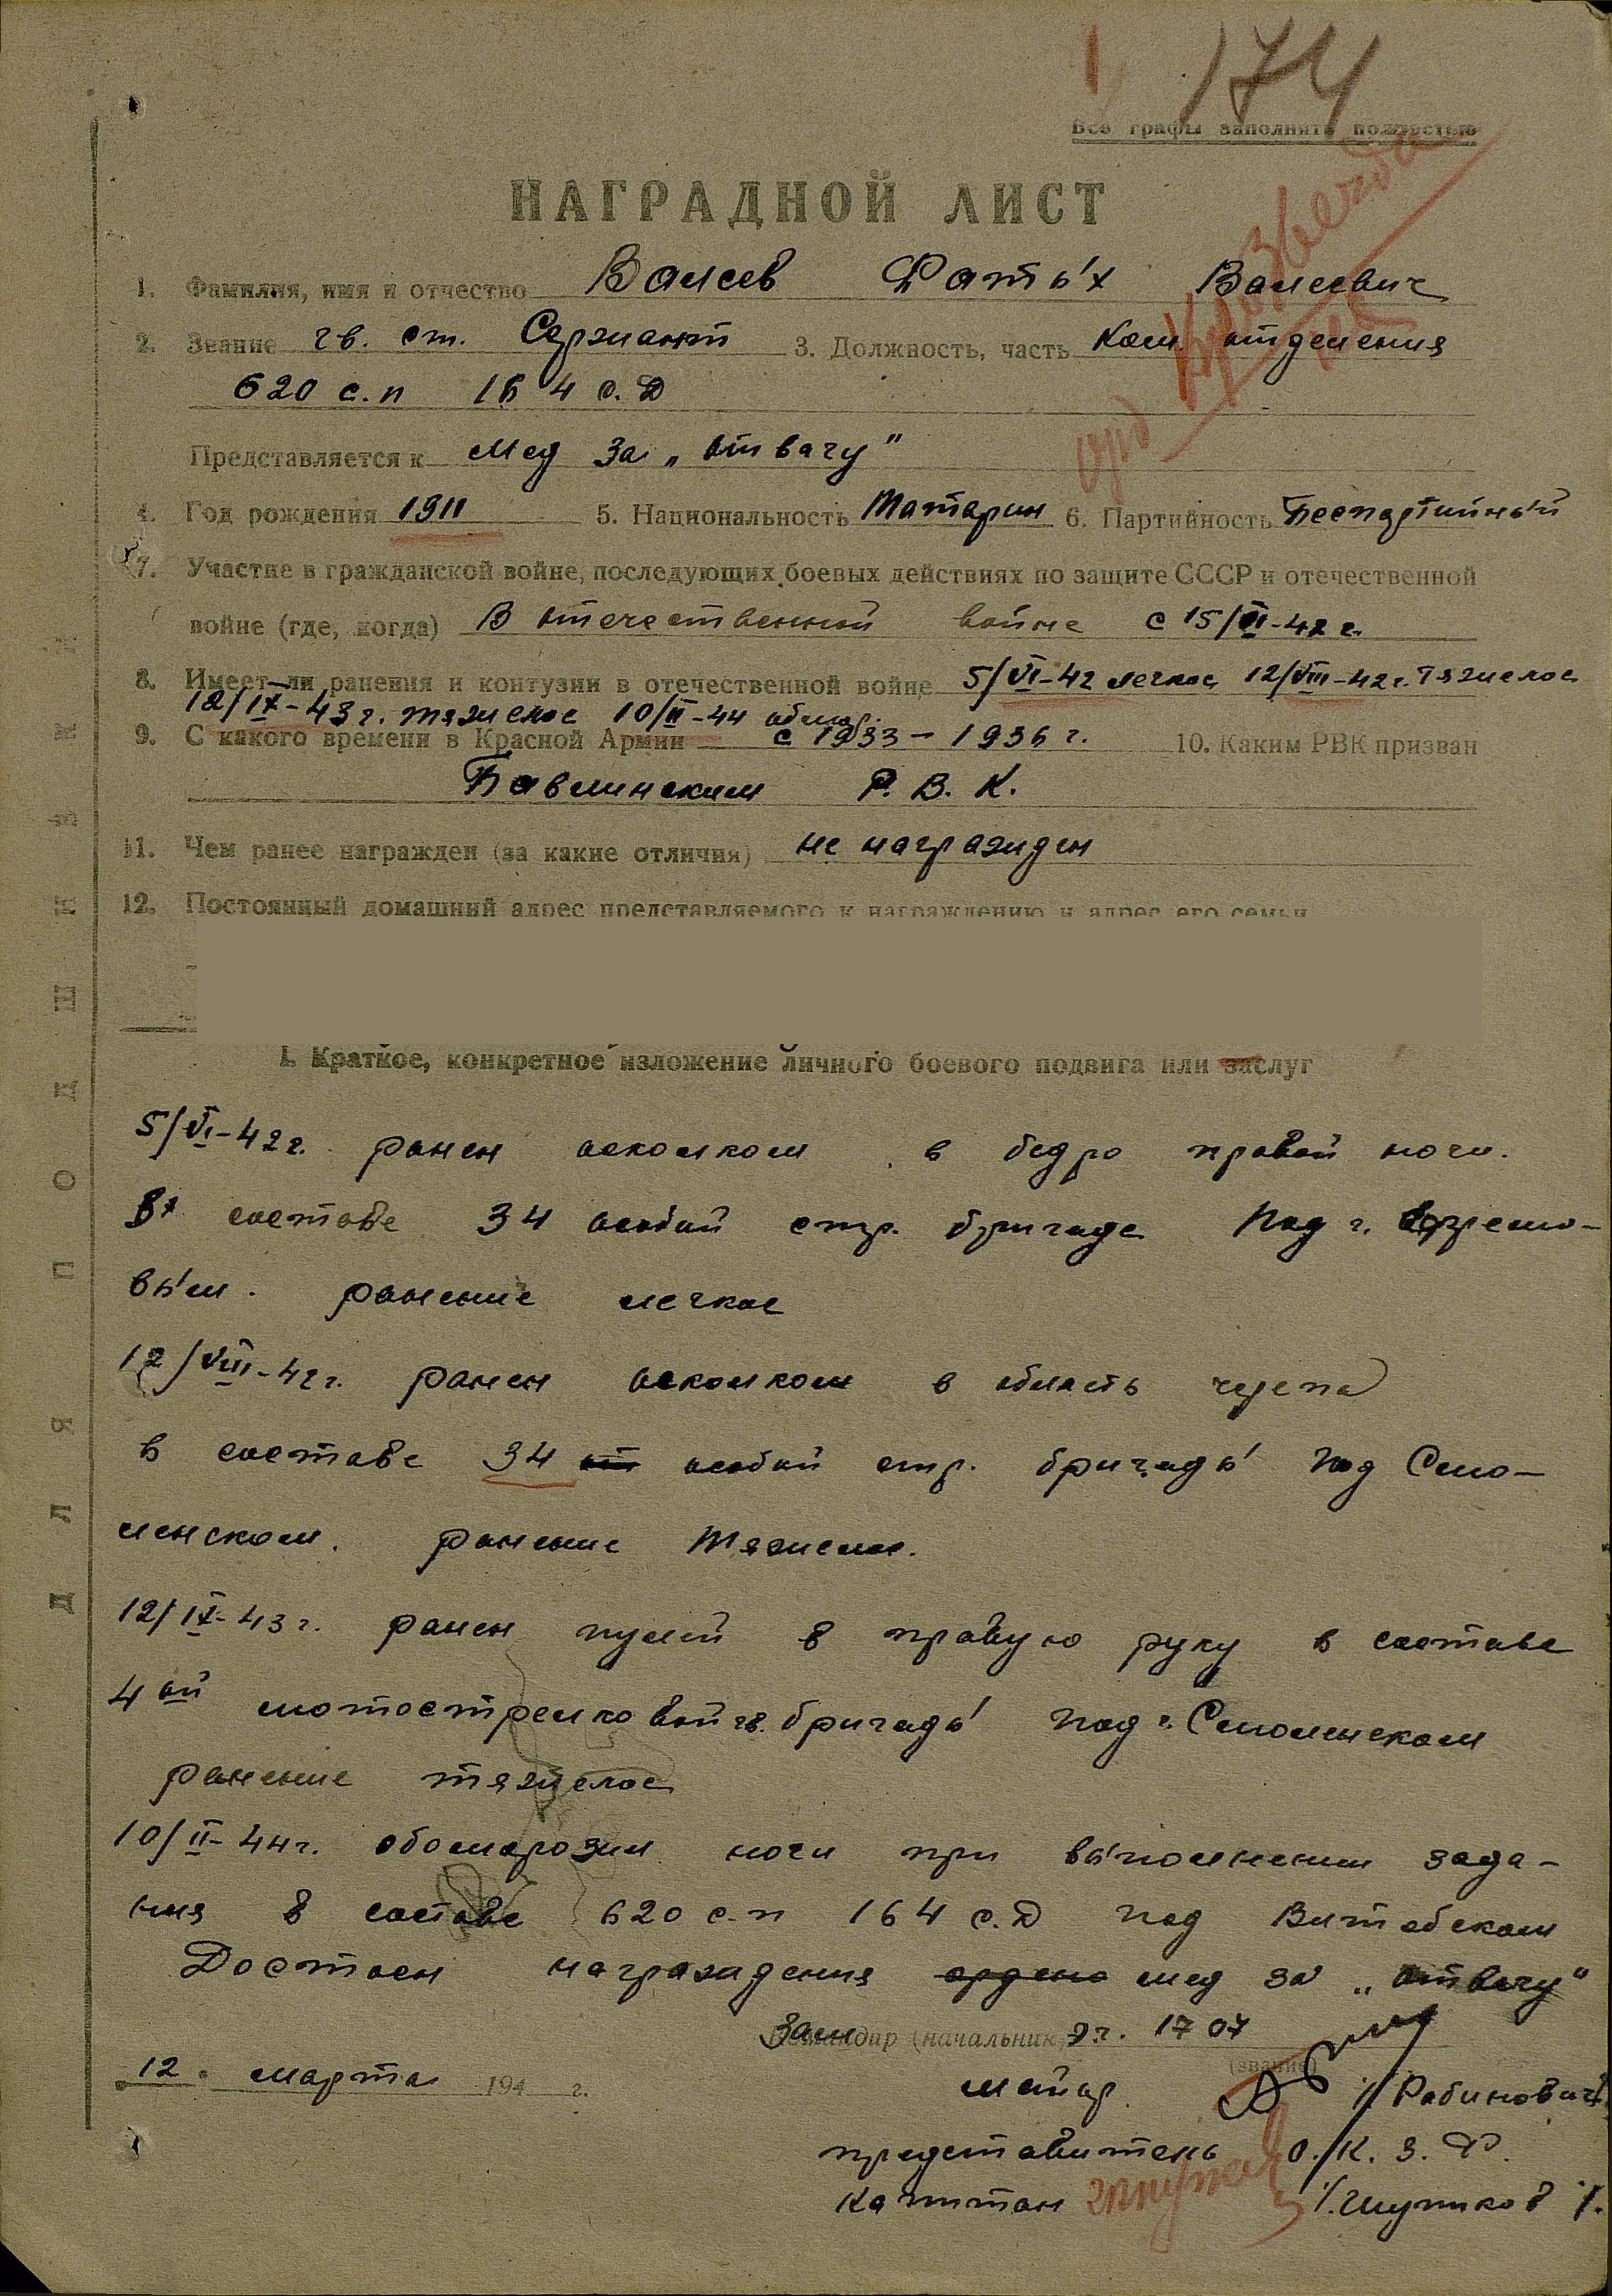 174
Все графы заполнять полностью
Орд Кр. Звезда
НАГРАДНОЙ ЛИСТ
1. Фамилия, имя и отчество Валеев Фатых Валеевич
2. Звание гв. ст. Сержант 3. Должность, часть Ком. отделения
620 с.п 164 с.Д
Представляется к Мед За „Отвагу"
4. Год рождения 1911 5. Национальность Татарин 6. Партийность Беспартийный
7. Участие в гражданской войне, последующих боевых действиях по защите СССР и отечественной
войне (где, когда) В отечественной войне с 15/III-42 г.
8. Имеет ли ранения и контузии в отечественной войне 5/VI-42 легкое 12/VIII-42 г. Тяжелое
12/IX-43 г. тяжелое 10/II-44 обмор.
9. С какого времени в Красной Армии с 1933-1936 г. 10. Каким РВК призван
Бавлинским Р.В.К.
11. Чем ранее награжден (за какие отличия) не награжден
12. Постоянный домашний адрес представляемого к награждению и адрес его семьи
I. Краткое, конкретное изложение личного боевого подвига или заслуг
5/VI-42 г. ранен осколком в бедро правой ноги.
В составе 34 особой стр. бригаде Под г.
вым. ранение легкое
12/VIII-42 г. ранен осколком в область черепа
в составе 34 особой стр. бригады под Смо-
ленском. ранение тяжелое.
12/IX-43 г. ранен пулей в правую руку в составе
4ой мотострелковой гв. бригады под г. Смоленском
ранение тяжелое
10/II-44 г. обоморозил ноги при выполнении зада-
ния в составе 620 с.п 164 с.Д под Витебском
Достоен награждения ордено мед за „Отвагу"
Зам Командир (начальник) э.г. 1707
(звание)
12. марта 194 г.
майор /Рабинович/
представитель О.К.З.Ф.
Капитан /Шупиков/.
ДЛЯ ПОДШИВКИ